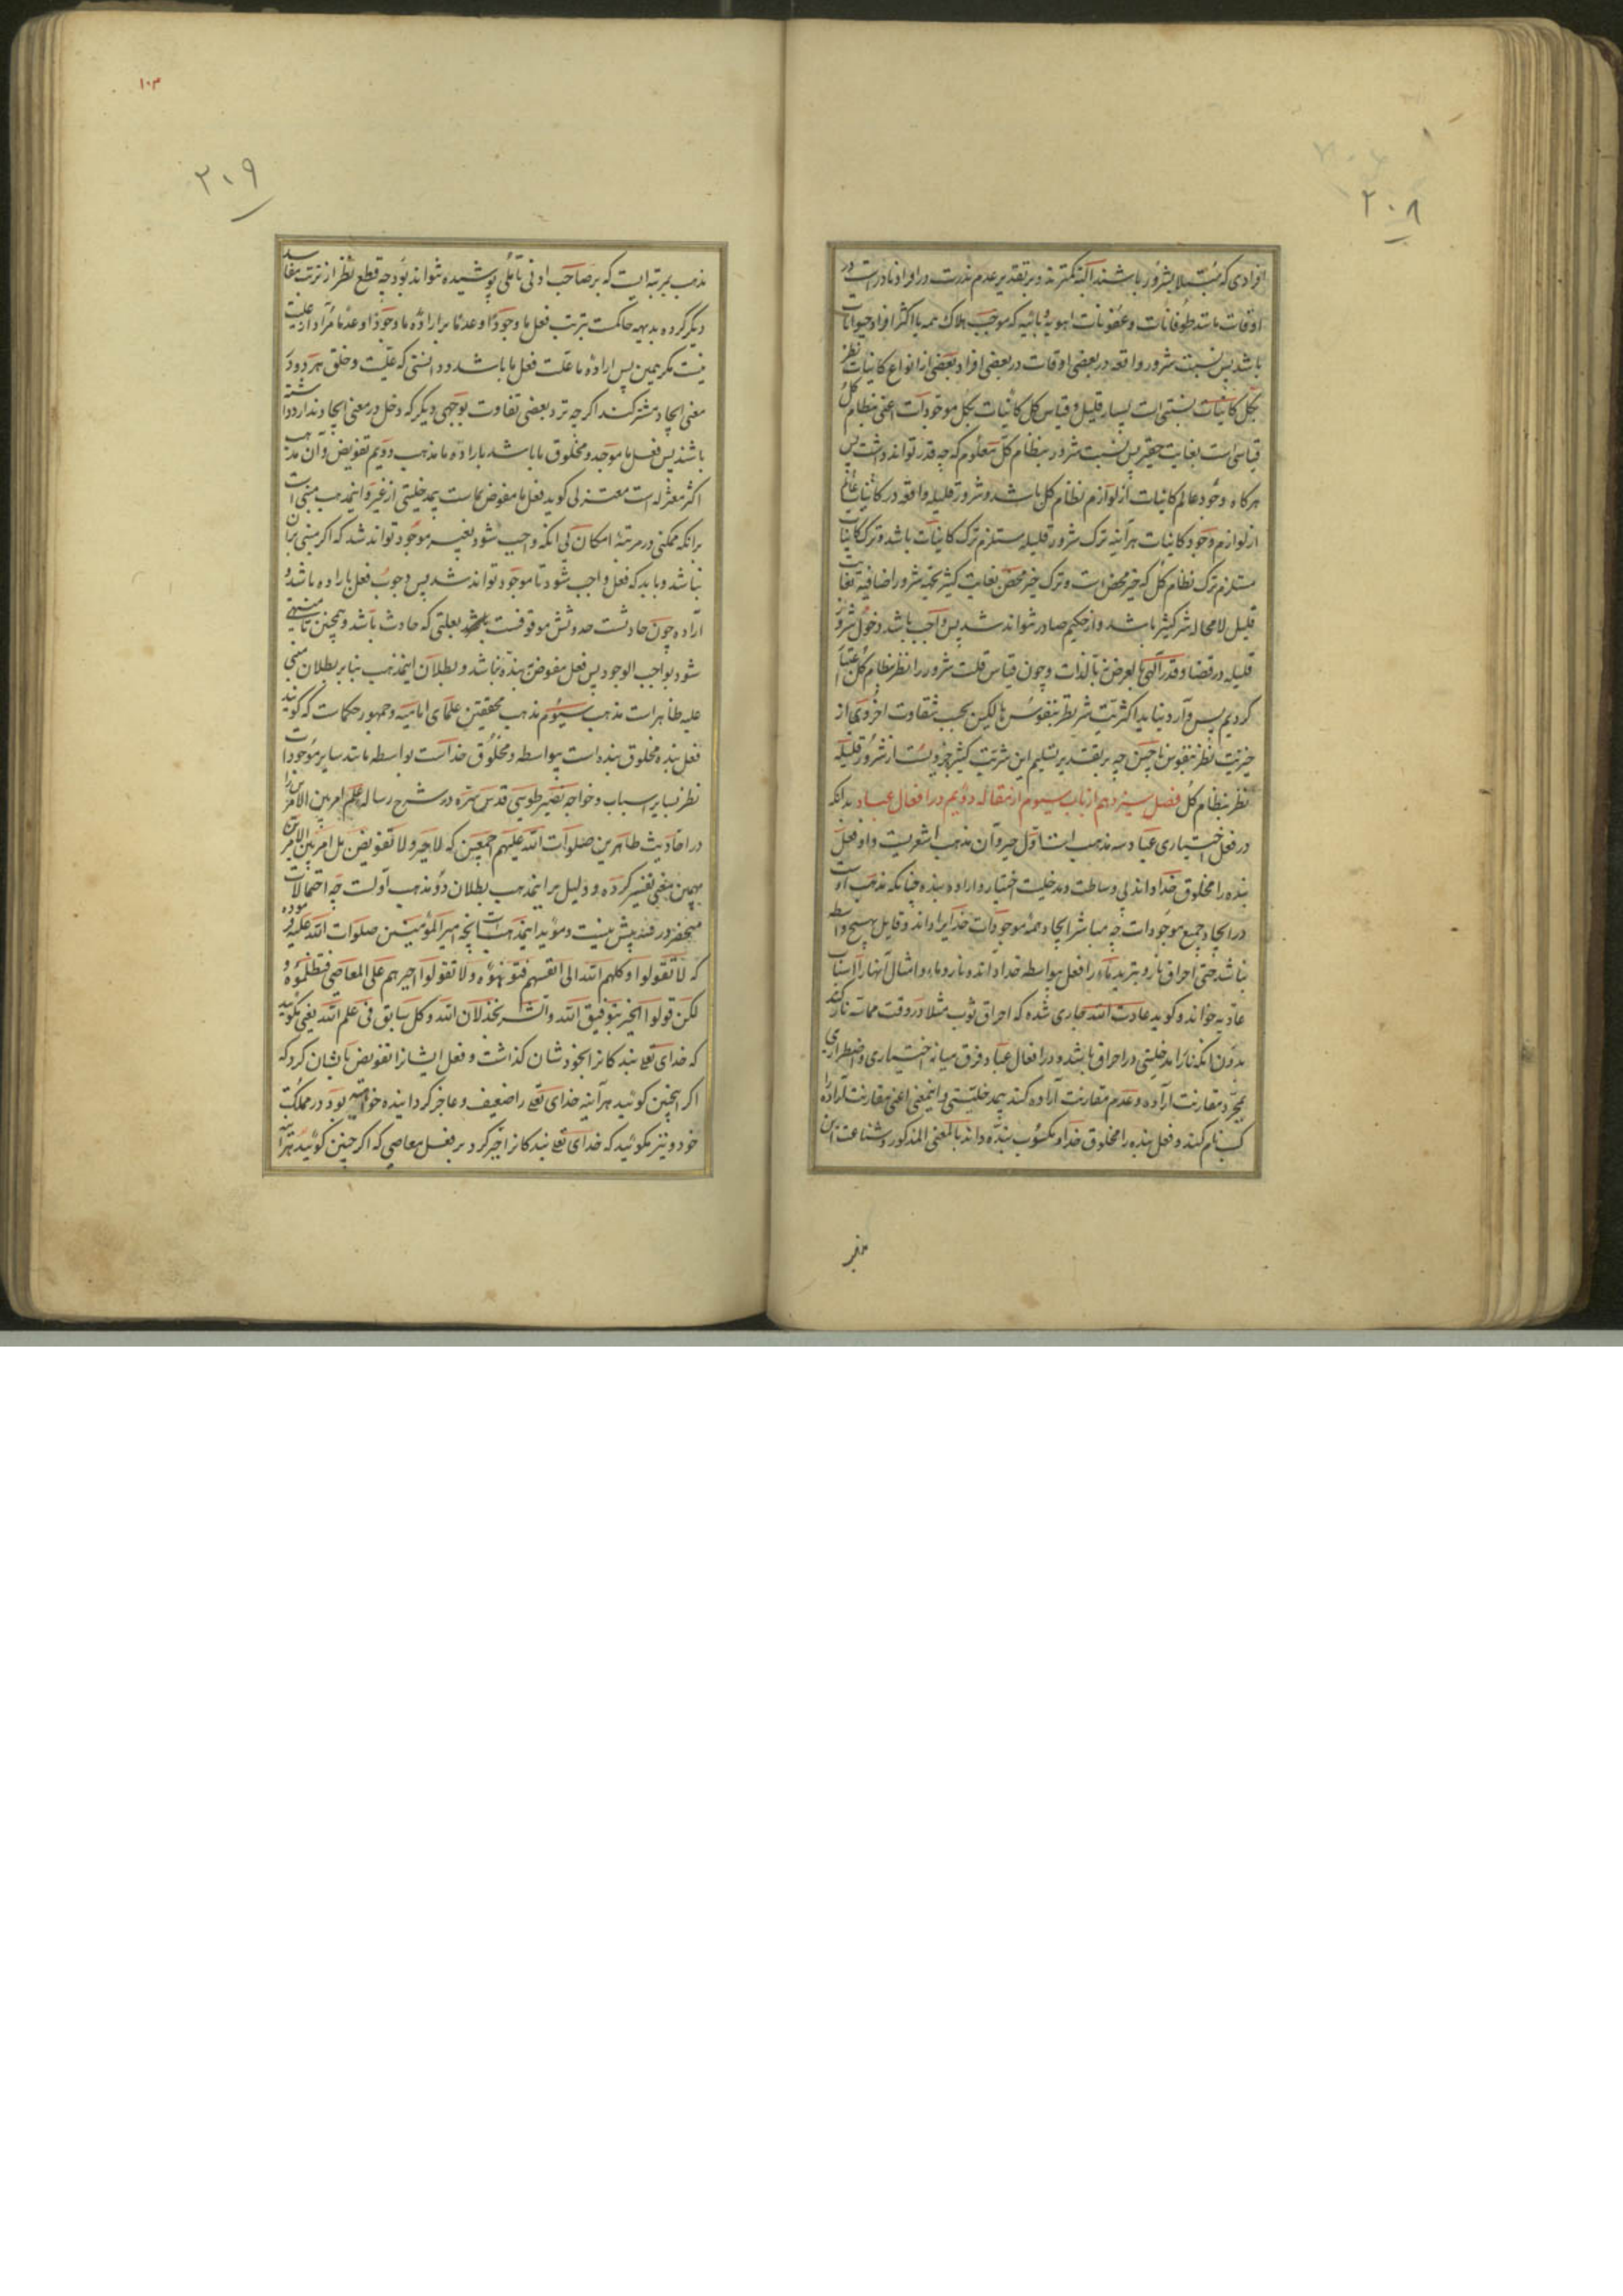 ۲۰۸
افرادی که مبتلا بشرور باشند البته کمترند و بر تقدیر عدم ندرت در افراد نادر است در
اوقات مانند طوفانات و عفونات اهویهٔ وبائیه که موجب هلاک همه یا اکثر افراد حیوانات
باشد پس نسبت شرور واقعه در بعضی اوقات در بعضی افراد بعضی از انواع کاینات نظر
بکل کاینات نسبتی است بسیار قلیل و قیاس کل کاینات بکل موجودات اعنی نظام کل
قیاسی است بغایت حقیر پس نسبت شرور بنظام کل معلوم که چه قدر تواند داشت پس
هرگاه وجود عالم کاینات از لوازم نظام کل باشد و شرور قلیله واقعه در کاینات عالم
از لوازم وجود کاینات هرآینه ترک شرور قلیله مستلزم ترک کاینات باشد و ترک کاینات
مستلزم ترک نظام کل که خیر محض است و ترک خیر محض بغایت کثیر بجهة شرور اضافیه بغایت
قلیل لامحاله شر کثیر باشد و از حکیم صادر نتواند شد پس واجب باشد دخول شرور
قلیله در قضا و قدر آلهی بالعرض نه بالذات و چون قیاس قلت شرور را نظر بنظام کل اعتبار
کردیم پس وارد نیاید اکثریت شر نظر بنفوس ناطقه لیکن بحسب شقاوت اخروی از
خیریت نظر بنفوس چه بر تقدیر تسلیم این شریت کثیر جزویست از شرور قلیله
نظر بنظام کل فصل سیزدهم از باب سیوم از مقاله دویم در افعال عباد بدانکه
در فعل اختیاری عباد سه مذهب است اول جبر و آن مذهب اشعریست و او فعل
بنده را مخلوق خدا داند بی وساطت و مدخلیت اختیار و اراده بنده چنانکه مذهب اوست
در ایجاد جمیع موجودات چه مباشر ایجاد همهٔ موجودات خدایرا داند و قایل بهیچ واسطه
نباشد حتی احراق نار و تبرید ماء را فعل بیواسطه خدا داند و نار و ماء و امثال آنها را اسباب
عادیه خواند و گوید عادت الله جاری شده که احراق ثوب مثلا در وقت مماسه نار کند
بدون انکه نار را مدخلیتی در احراق باشد و در افعال عباد فرق میانه اختیاری و اضطراری
بمجرد مقارنت اراده و عدم مقارنت اراده کند بیمدخلیتی و اینمعنی اعنی مقارنت اراده را
کسب نام کند و فعل بنده را مخلوق خدا و مکسوب بنده داند بالمعنی المذکور و شناعت این
۱۰۳
۲۰۹
مذهب بمرتبه ایست که بر صاحب ادنی تأملی پوشیده نتواند بود چه قطع نظر از ترتب مفاسد
دیگر کرده بدیهه حاکمست بترتب فعل ما وجودا و عدما بر ارادهٔ ما وجودا و عدما و مراد از علیت
نیست مگر همین پس ارادهٔ ما علت فعل ما باشد و دانستی که علیت و خلق هر دو در
معنی ایجاد مشترکند اگرچه نزد بعضی تفاوت بوجهی دیگر که دخل در معنی ایجاد ندارد داشته
باشند پس فعل ما موجد و مخلوق ما باشد باراده ما مذهب دویم تفویض و آن مذهب
اکثر معتزله است معتزلی گوید فعل ما مفوض بماست بیمدخلیتی از غیر و اینمذهب مبنی است
برانکه ممکنی در مرتبهٔ امکان بی انکه واجب شود بغیر موجود تواند شد که اگر مبنی بران
نباشد و باید که فعل واجب شود تا موجود تواند شد پس وجوب فعل باراده باشد و
اراده چون حادثست حدوثش موقوفست بعلتی که حادث باشد و همچنین تا منتهی
شود بواجب الوجود پس فعل مفوض ببنده نباشد و بطلان اینمذهب بنا بر بطلان مبنی
علیه ظاهر است مذهب سیوم مذهب محققین علمای امامیه و جمهور حکماست که گویند
فعل بنده مخلوق بنده است بیواسطه و مخلوق خداست بواسطه مانند سایر موجودات
نظر بسایر اسباب و خواجه نصیر طوسی قدس سره در شرح رساله علم امر بین الامرین را
در احادیث طاهرین صلوات الله علیهم اجمعین که لا جبر و لا تفویض بل امر بین الامرین
بهمین معنی تفسیر کرده و دلیل بر اینمذهب بطلان دو مذهب اولست چه احتمالات
منحصر در سه بیش نیست و مؤید اینمذهب است انچه امیر المؤمنین صلوات الله علیه فرموده
که لا تقولوا وکلهم الله الی انفسهم فتوهنوه و لا تقولوا اجبرهم علی المعاصی فتظلموه و
لکن قولوا الخیر بتوفیق الله و الشر بخذلان الله و کل سابق فی علم الله یعنی مگویید
که خدای تعالی بندگانرا بخودشان گذاشت و فعل ایشانرا تفویض بایشان کرد که
اگر اینچنین گوئید هرآینه خدای تعالی را ضعیف و عاجز گردانیده خواهید بود در مملکت
خود و نیز مگوئید که خدای تعالی بندگانرا جبر کرد بر فعل معاصی که اگر چنین گوئید هرآینه